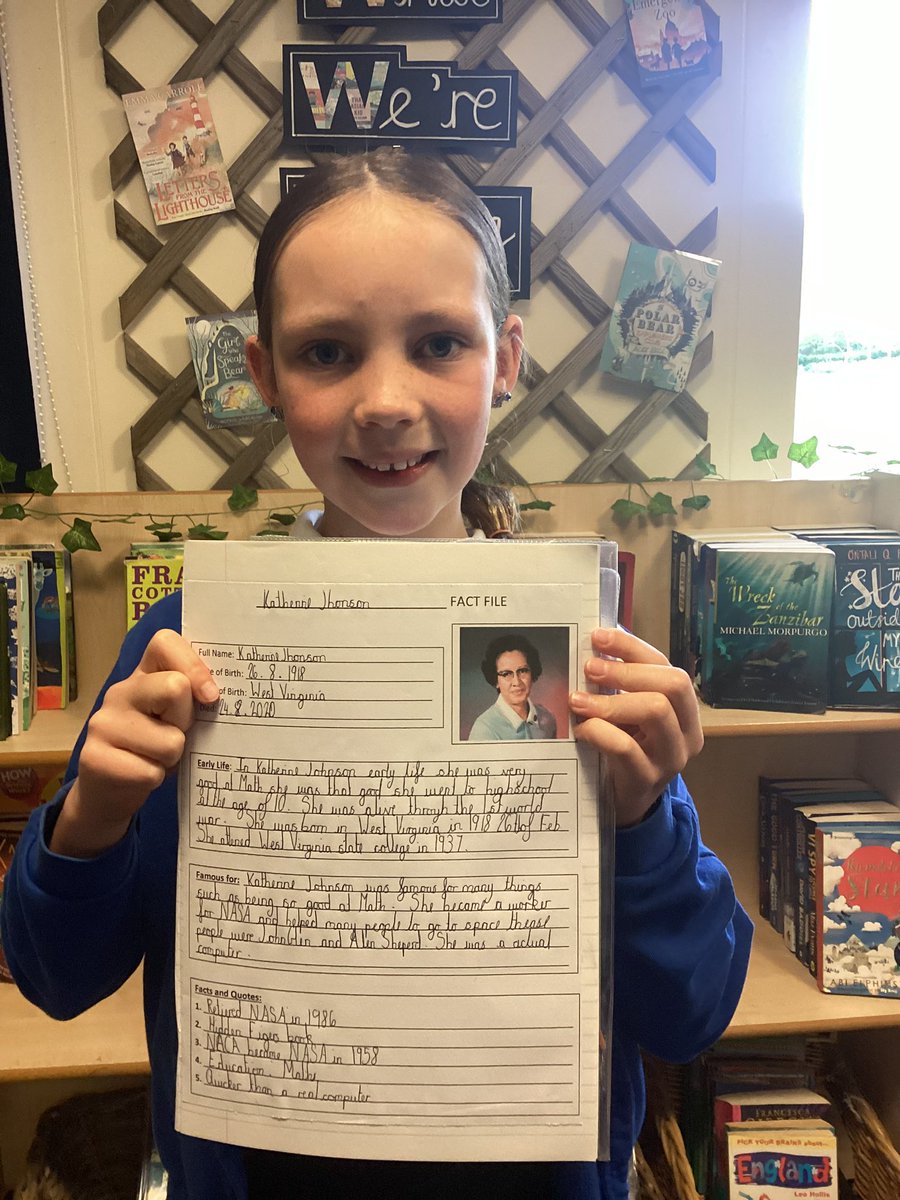 We're
EMMA CARROLL
LETTERS
FROM THE
LIGHTHOUSE
Zoo
The
Girl
who
Speaks
Bear
POLAR
BEAR
FRA
COTT
The
Wreck
of the
Zanzibar
MICHAEL MORPURGO
ONJALI Q.
The
Sta
outsid
MY
Wind
Katherine Jhonson FACT FILE
Full Name: Katherine Jhonson
e of Birth: 26.8.1918
of Birth: West Virginia
Died 24.8.2020
Early Life: In Katherine Johnson early life she was very
good at Math she was that good she went to highschool
at the age of 10. She was alive through the 1st world
war. She was born in West Virginia in 1918 26th of Feb
She attined West Virginia state college in 1937.
Famous for: Katherine Johnson was famous for many things
such as being so good at Math. She became a worker
for NASA and helped many people to go to space these
people were and Alen Sheperd. She was a actual
computer.
Facts and Quotes:
1. Retired NASA in 1986
2. Hidden Figers book
3. NACA became NASA in 1958
4. Education Maths
5. Quicker than a real computer
HOW
I SPY
Star
ABI ELPHINS
FRANCESCA
PICK YOUR BRAINS ABOUT
England
Leo Hollis